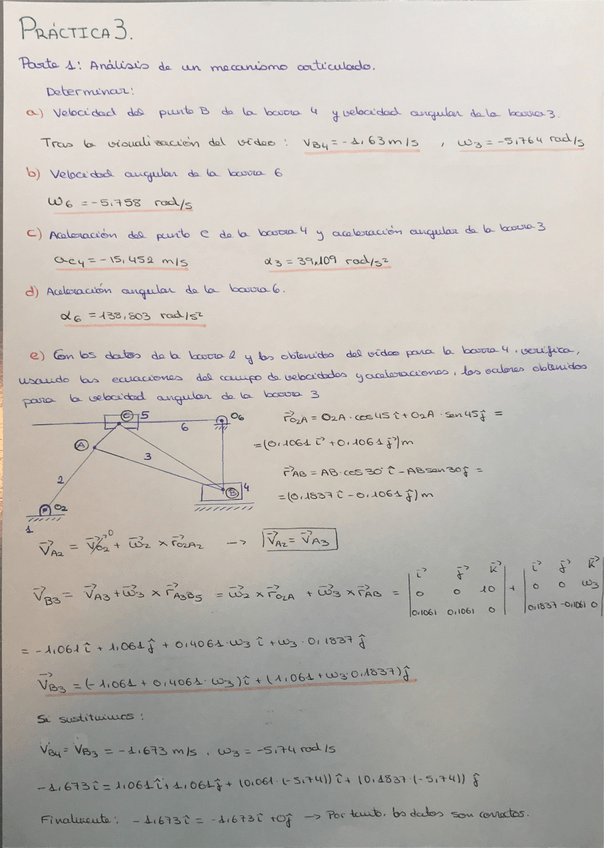 PRÁCTICA 3.
Parte 1: Análisis de un mecanismo articulado.
Determinar:
a) Velocidad del punto B de la barra 4 y velocidad angular de la barra 3.
Tras la visualización del vídeo: VB4 = -1,63 m/s , ω3 = -5,764 rad/s
b) Velocidad angular de la barra 6
ω6 = -5,758 rad/s
c) Aceleración del punto C de la barra 4 y aceleración angular de la barra 3
ac4 = -15,452 m/s α3 = 39,109 rad/s²
d) Aceleración angular de la barra 6.
α6 = 138,803 rad/s²
e) Con los datos de la barra 2 y los obtenidos del vídeo para la barra 4, verifica,
usando las ecuaciones del campo de velocidades y aceleraciones, los valores obtenidos
para la velocidad angular de la barra 3
C 5 O6 6 A 3 2 B 4 O2 1
r⃗O2A = O2A · cos45 î + O2A · sen45 ĵ =
= (0,1061 î + 0,1061 ĵ) m
r⃗AB = AB · cos30 î - AB sen30 ĵ =
= (0,1837 î - 0,1061 ĵ) m
V⃗A2 = V⃗O2 0 + ω⃗2 × r⃗O2A2 → V⃗A2 = V⃗A3
V⃗B3 = V⃗A3 + ω⃗3 × r⃗A3B5 = ω⃗2 × r⃗O2A + ω⃗3 × r⃗AB = | i⃗ j⃗ k⃗ | + | i⃗ j⃗ k⃗ |
| 0 0 10 | | 0 0 ω3 |
| 0,1061 0,1061 0 | | 0,1837 -0,1061 0 |
= -1,061 î + 1,061 ĵ + 0,1061 · ω3 î + ω3 · 0,1837 ĵ
V⃗B3 = (-1,061 + 0,1061 · ω3) î + (1,061 + ω3 · 0,1837) ĵ
Si sustituimos:
VB4 = VB3 = -1,673 m/s , ω3 = -5,74 rad/s
-1,673 î = 1,061 î + 1,061 ĵ + (0,061 · (-5,74)) î + (0,1837 · (-5,74)) ĵ
Finalmente: -1,673 î = -1,673 î + 0 ĵ → Por tanto, los datos son correctos.